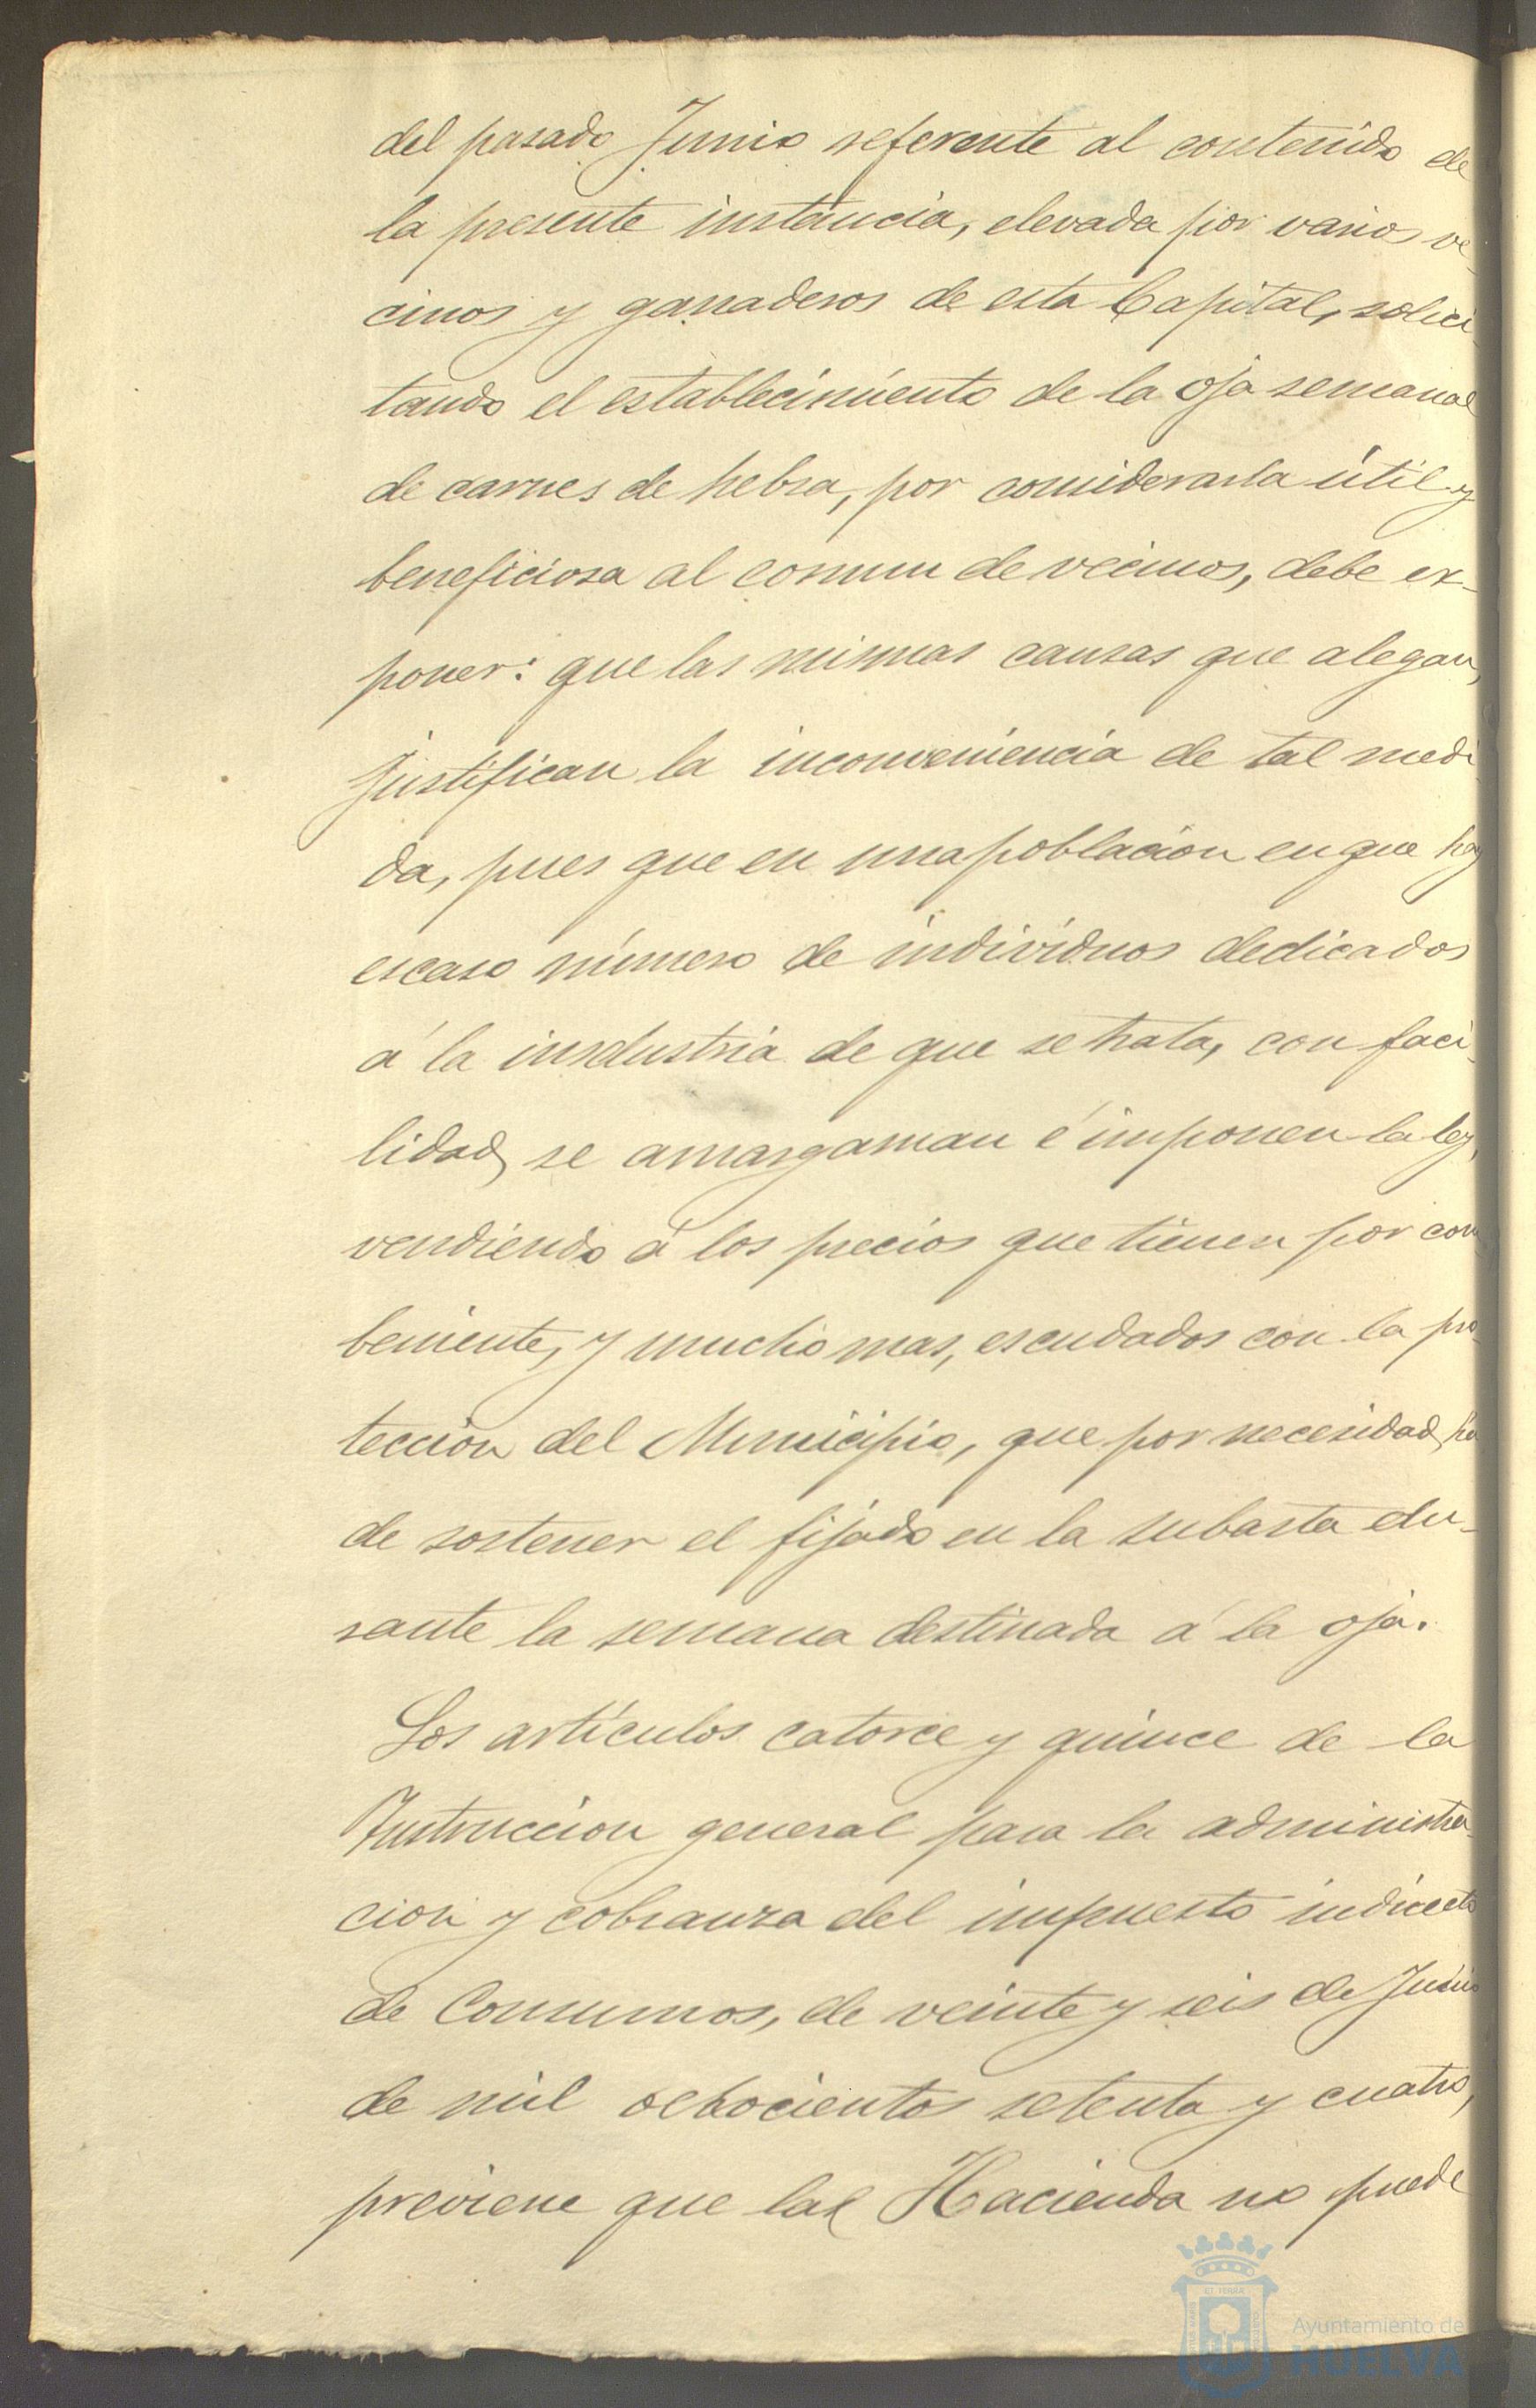 del pasado Junio referente al contenido de
la presente instancia, elevada por varios ve-
cinos y ganaderos de esta Capital, solici-
tando el establecimiento de la oja semanal
de carnes de hebra, por considerarla útil y
beneficiosa al comun de vecinos, debe ex-
poner: que las mismas causas que alegan,
justifican la inconveniencia de tal medi-
da, pues que en una poblacion en que hay
escaso número de individuos dedicados
á la insdustria de que se trata, con faci-
lidad se amargaman é imponen la ley,
vendiendo á los precios que tienen por con
beniente, y mucho mas, escudados con la pro-
teccion del Municipio, que por necesidad ha
de sostener el fijado en la subasta du-
rante la semana destinada á la oja.
Los artículos catorce y quince de la
Instruccion general para la administra-
cion y cobranza del impuesto indirecto
de Consumos, de veinte y seis de Junio
de mil ochocientos setenta y cuatro,
previene que la Hacienda no puede
Ayuntamiento de
HUELVA